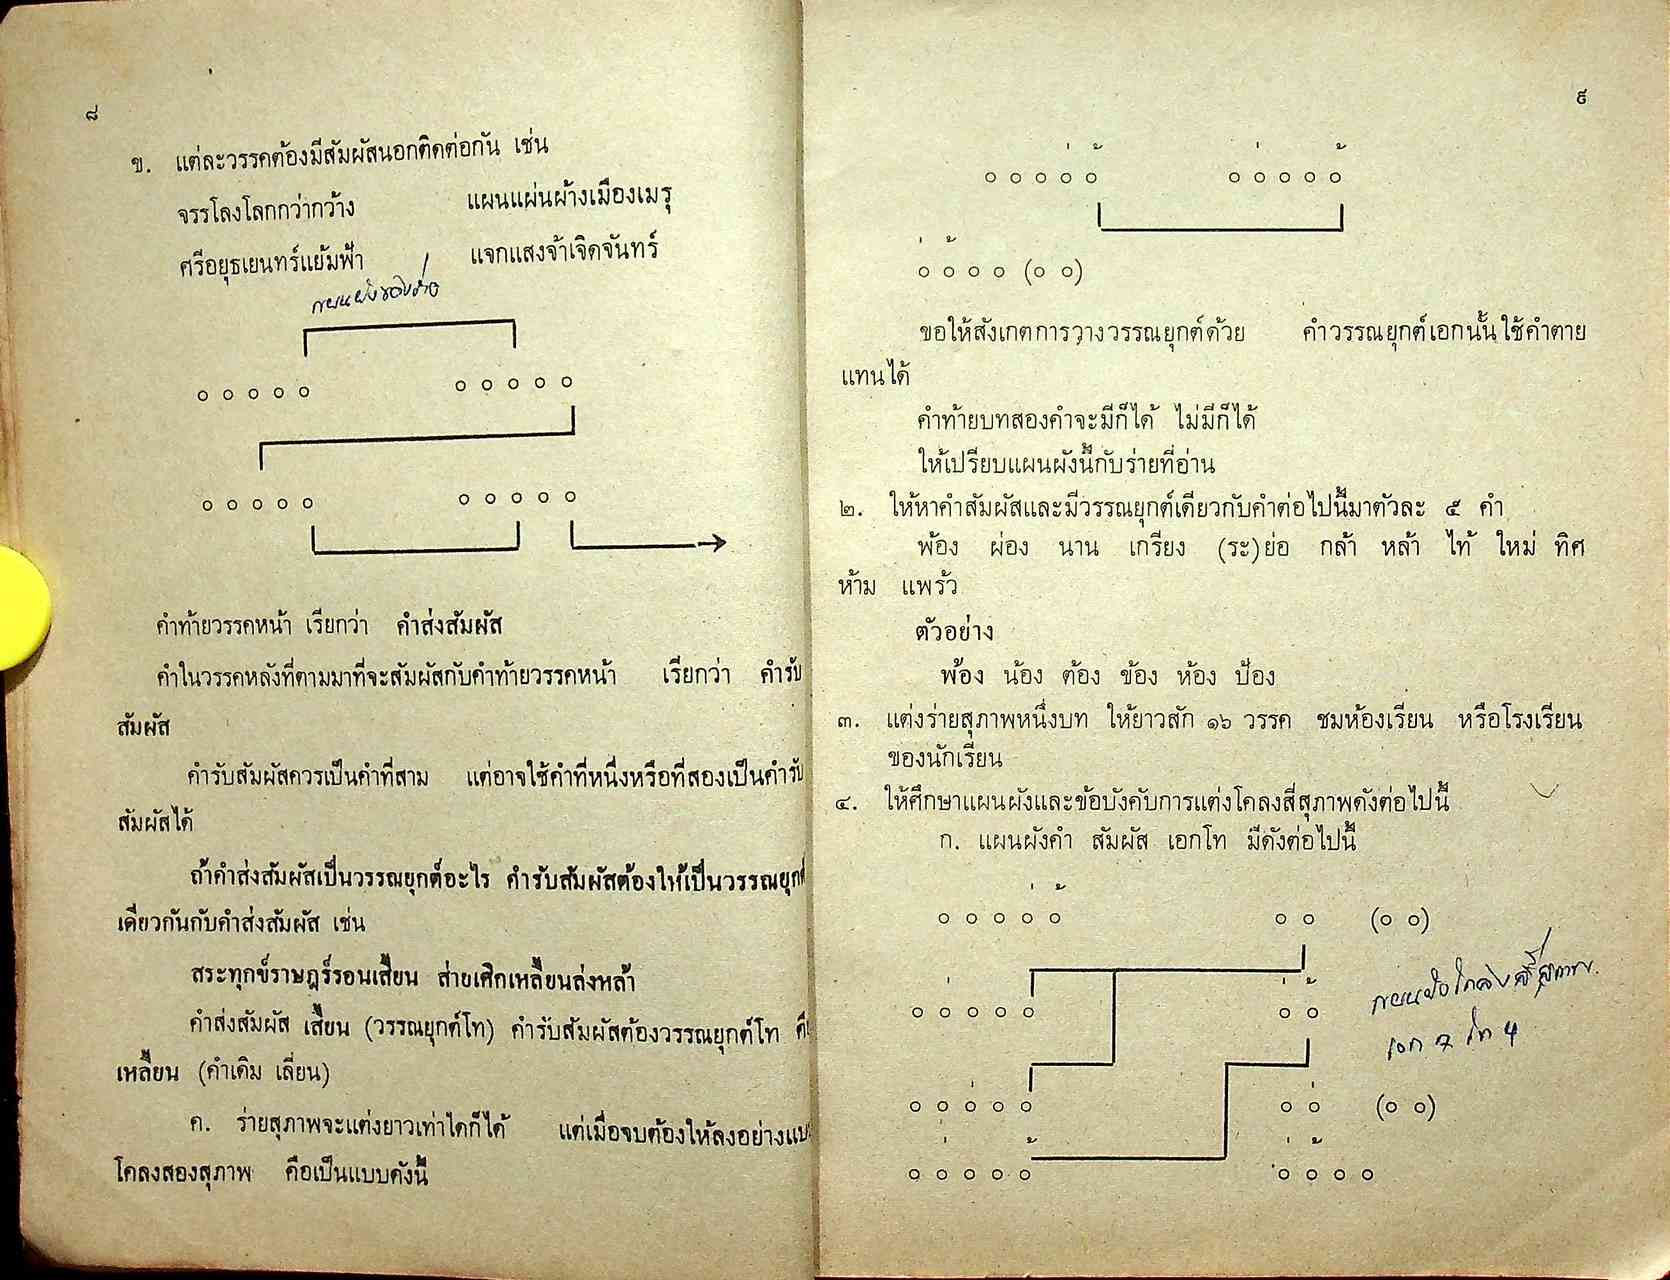 ๘
ข. แต่ละวรรคต้องมีสัมผัสนอกติดต่อกัน เช่น
จรรโลงโลกกว่ากว้าง แผนแผ่นผ้างเมืองเมรุ
ศรีอยุธเยนทร์แย้มฟ้า แจกแสงจ้าเจิดจันทร์
แผนผังของร่าย
๐ ๐ ๐ ๐ ๐ ๐ ๐ ๐ ๐ ๐
๐ ๐ ๐ ๐ ๐ ๐ ๐ ๐ ๐ ๐
คำท้ายวรรคหน้า เรียกว่า คำส่งสัมผัส
คำในวรรคหลังที่ตามมาที่จะสัมผัสกับคำท้ายวรรคหน้า เรียกว่า คำรับ
สัมผัส
คำรับสัมผัสควรเป็นคำที่สาม แต่อาจใช้คำที่หนึ่งหรือที่สองเป็นคำรับ
สัมผัสได้
ถ้าคำส่งสัมผัสเป็นวรรณยุกต์อะไร คำรับสัมผัสต้องให้เป็นวรรณยุกต์
เดียวกันกับคำส่งสัมผัส เช่น
สระทุกข์ราษฎร์รอนเสี้ยน ส่ายเศิกเหลี้ยนล่งหล้า
คำส่งสัมผัส เสี้ยน (วรรณยุกต์โท) คำรับสัมผัสต้องวรรณยุกต์โท คือ
เหลี้ยน (คำเดิม เลี่ยน)
ค. ร่ายสุภาพจะแต่งยาวเท่าใดก็ได้ แต่เมื่อจบต้องให้ลงอย่างแบบ
โคลงสองสุภาพ คือเป็นแบบดังนี้
๙
๐ ๐ ๐ ๐่ ๐้ ๐ ๐่ ๐ ๐ ๐้
๐่ ๐้ ๐ ๐ (๐ ๐)
ขอให้สังเกตการวางวรรณยุกต์ด้วย คำวรรณยุกต์เอกนั้นใช้คำตาย
แทนได้
คำท้ายบทสองคำจะมีก็ได้ ไม่มีก็ได้
ให้เปรียบแผนผังนี้กับร่ายที่อ่าน
๒. ให้หาคำสัมผัสและมีวรรณยุกต์เดียวกับคำต่อไปนี้มาตัวละ ๕ คำ
พ้อง ผ่อง นาน เกรียง (ระ)ย่อ กล้า หล้า ไท้ ใหม่ ทิศ
ห้าม แพร้ว
ตัวอย่าง
พ้อง น้อง ต้อง ข้อง ห้อง ป้อง
๓. แต่งร่ายสุภาพหนึ่งบท ให้ยาวสัก ๑๖ วรรค ชมห้องเรียน หรือโรงเรียน
ของนักเรียน
๔. ให้ศึกษาแผนผังและข้อบังคับการแต่งโคลงสี่สุภาพดังต่อไปนี้
ก. แผนผังคำ สัมผัส เอกโท มีดังต่อไปนี้
๐ ๐ ๐ ๐่ ๐้ ๐ ๐ (๐ ๐)
๐ ๐่ ๐ ๐ ๐ ๐่ ๐้
แผนผังโคลงสี่สุภาพ
เอก 7 โท 4
๐ ๐ ๐่ ๐ ๐่ ๐ ๐่ (๐ ๐)
๐ ๐่ ๐ ๐ ๐้ ๐่ ๐้ ๐ ๐